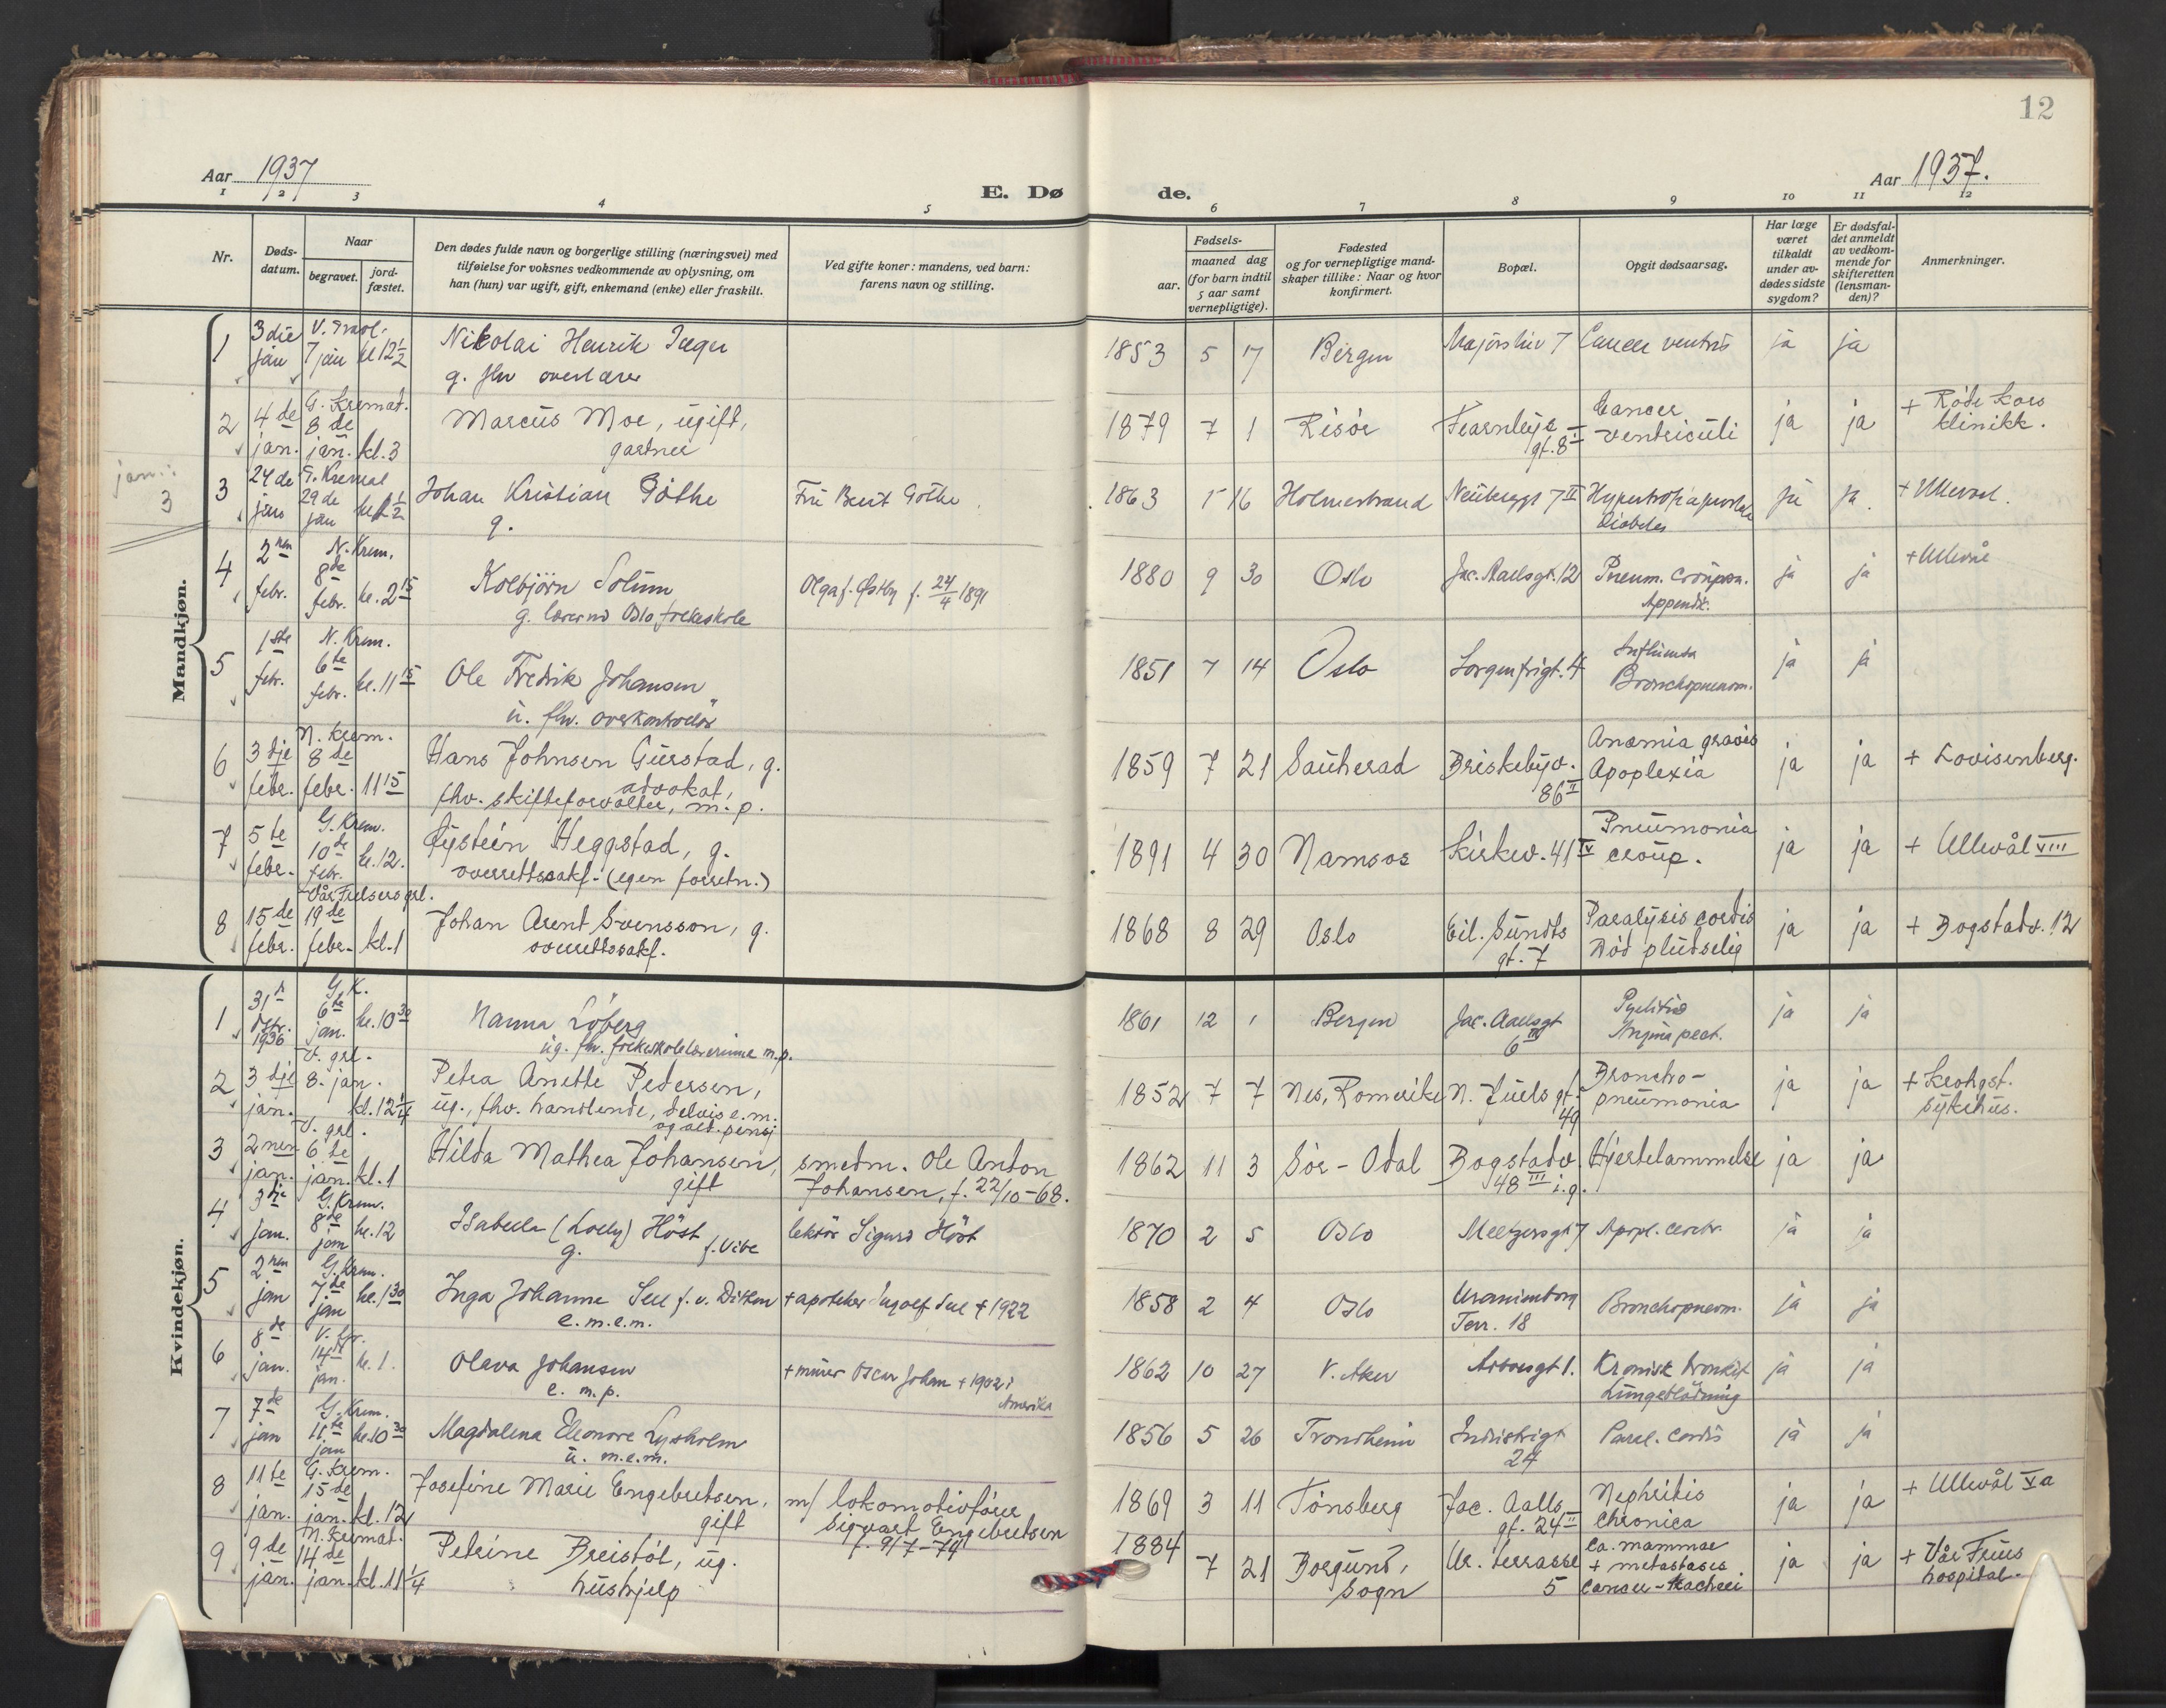 12
Aar 1937
Aar 1937.
E. Dø de.
1 2 3 4 5 6 7 8 9 10 11 12
Nr.
Døds-datum.
Naar
begravet.
jord-fæstet.
Den dødes fulde navn og borgerlige stilling (næringsvei) med
tilføielse for voksnes vedkommende av oplysning, om
han (hun) var ugift, gift, enkemand (enke) eller fraskilt.
Ved gifte koner: mandens, ved barn:
farens navn og stilling.
Fødsels-
aar. maaned dag
(for barn indtil
5 aar samt
vernepligtige).
Fødested
og for vernepligtige mand-
skaper tillike: Naar og hvor
konfirmert.
Bopæl.
Opgit dødsaarsag.
Har læge
været
tilkaldt
under av-
dødes sidste
sygdom?
Er dødsfal-
det anmeldt
av vedkom-
mende for
skifteretten
(lensman-
den)?
Anmerkninger.
Mandkjøn.
1 3die jan 7 jan kl 12 1/2 Nikolai Henrik 1853 5 17 Bergen 7 Cancer ventris ja ja
g. fhv overlærer
2 4de jan. G. Kremat. 8de jan. kl. 3 Marcus Moe, ugift, 1879 7 1 Risör Fearnleys gt. 8 I Cancer ventriculi ja ja + Röde Kors klinikk.
gartner
jan.: 3
3 24de jan 29de jan Johan Kristian Göthe Fru Göthe 1863 16 Holmestrand 7 II Hypertrofia prostata diabetes ja ja + Ullevaal.
g.
4 2nen febr. N. Krem. 8de febr. kl. 2 15 Kolbjörn Solum Olga f. Østby f. 24/4 1891 1880 9 30 Oslo Jac. Aallsgt. 12 Pneum. croupon. Appendic. ja ja + Ullevål
g. lærer ved Oslo folkeskole
5 1ste febr. N. Krem. 6te febr. kl. 11 15 Ole Fredrik Johansen 1851 7 14 Oslo Sorgenfrigt. 4 Influensa Bronchopneum. ja ja
u. fhv. overkontrollör
6 3dje febr. N. Krem. 8de febr. 11 15 Hans Johnsen Gurstad, g. 1859 7 21 Sauherad Briskebyv. 86 II Anæmia gravis Apoplexia ja ja + Lovisenberg.
advokat,
fhv. skifteforvalter, m. p.
7 5te febr. G. Krem. 10de febr. kl. 12. Øystein Heggstad, g. 1891 4 30 Namsos Kirkev. 41 IV Pneumonia croup. ja ja + Ullevål VIII
overrettssakf. (egen forretn.)
8 15de febr. Vår Frelsers grl. 19de febr. kl. 1 Johan Arent Svensson, g. 1868 8 29 Oslo Eil. Sundts gt. 7 Paralysis cordis Död pludselig ja ja + Bogstadv. 12
overrettssakf.
Kvindekjøn.
1 31 1936 G. K. 6te jan. kl. 10 30 Nanna Löberg 1861 12 1 Bergen Jac. Aallsgt 6 III Pyelitis Angina pect. ja ja
ug. fhv. folkeskolelærerinne m.p.
2 3dje jan. V. grl. 8. jan. kl. 12 1/4 Petra Anette Pedersen, 1852 7 7 Nes, Romerike N. Juels gt. 49 Broncho-pneumonia ja ja + Krohgst. sykehus.
ug., fhv. handlende, delvis e.m.
og ald. pensj
3 2nen jan. V. grl. 6te jan. kl. 1 Hilda Mathea Johansen, gift smedm. Ole Anton Johansen, f. 22/10-68. 1862 11 3 Sör-Odal Bogstadv. 48 III i. g. Hjertelammelse ja ja
4 3dje jan. G. Krem. 8de jan kl. 12 Isabella (Loelly) Höst f. Vibe lektör Sigurd Höst 1870 2 5 Oslo Meltzersgt 7 Apopl. cerebr. ja ja
g.
5 2nen jan G. Krem. 7de jan kl. 1 30 Inga Johanne f. v. Ditten + apoteker Ingolf + 1922 1858 2 4 Oslo Uranienborg Terr. 18 Bronchopneum. ja ja
e. m. e. m.
6 8de jan. 14de jan. kl. 1. Olava Johansen + murer Oscar Johan + 1902 i Amerika 1862 10 27 V. Aker 1. Kronisk bronkit Lungeblödning ja ja
e. m. p.
7 7de jan G. Krem. 11te jan kl. 10 30 Magdalena Eleonore Lysholm 1856 5 26 Trondheim Industrigt 24 Paral. cordis ja ja
u. m. e. m.
8 11te jan. G. Krem. 15de jan. kl. 12 Josefine Marie Engebretsen, gift m/ lokomotivförer Sigvart Engebretsen f. 9/7-74 1869 3 11 Tönsberg Jac. Aalls gt. 24 II Nephritis chronica ja ja + Ullevål V a
9 9de jan. N. Kremat. 14de jan. kl. 11 1/4 Petrine Breistöl, ug. 1884 7 21 Borgund, Sogn Ur. terrasse 5 Ca. mammae + metastases ja ja + Vår Frues hospital.
hushjelp